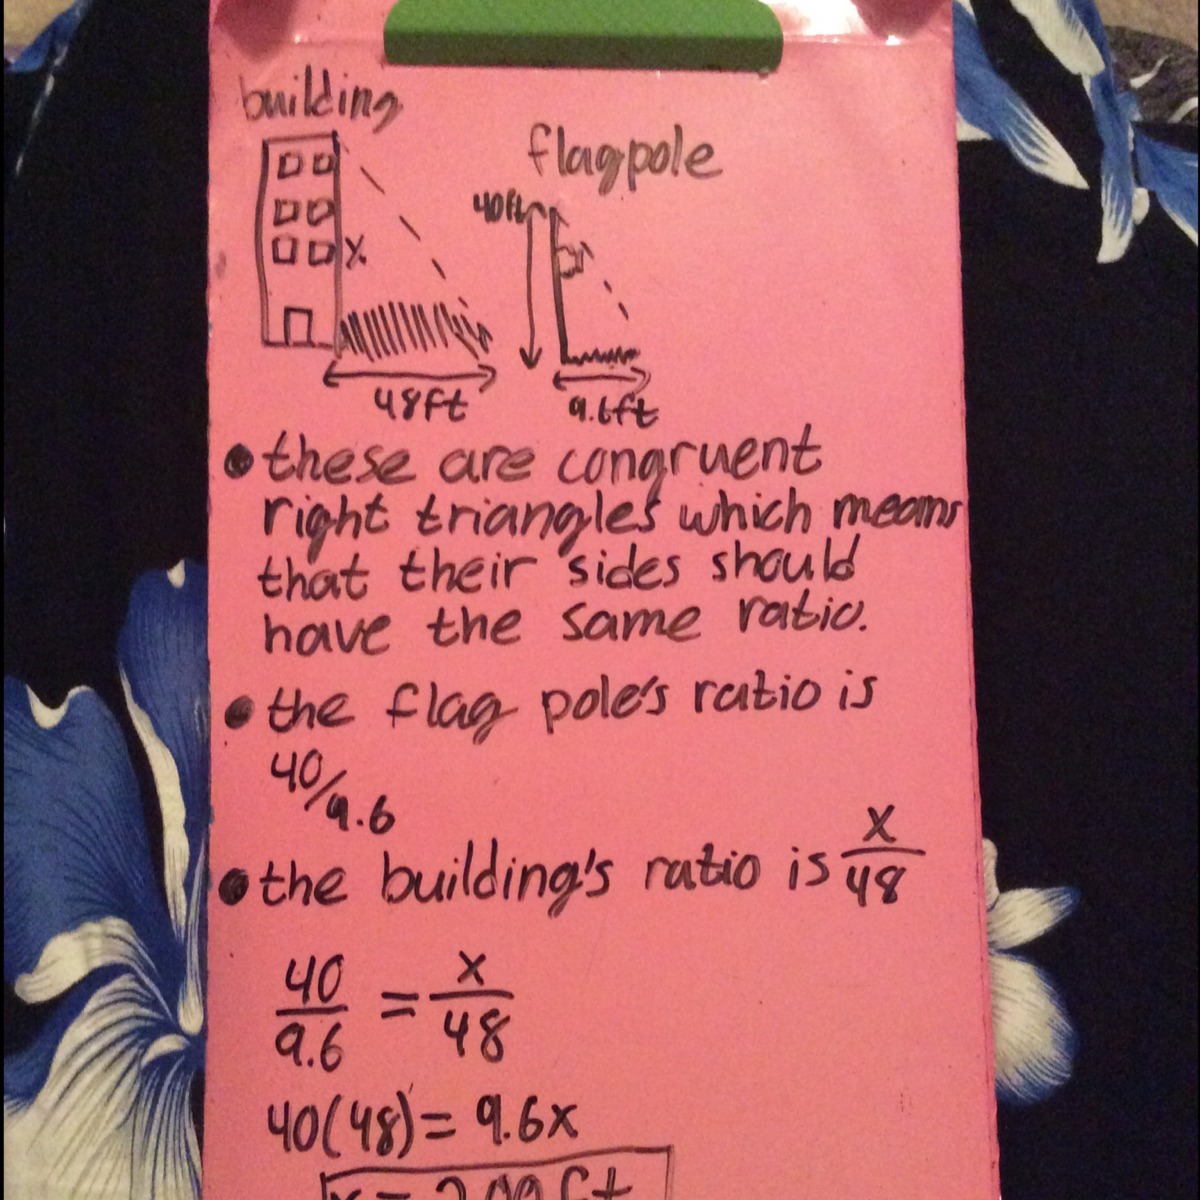 building
flagpole
40ft
x
48ft
9.6ft
• these are congruent
right triangles which means
that their sides should
have the same ratio.
• the flag pole's ratio is
40/9.6
• the building's ratio is x/48
40/9.6 = x/48
40(48) = 9.6x
x = 200 ft